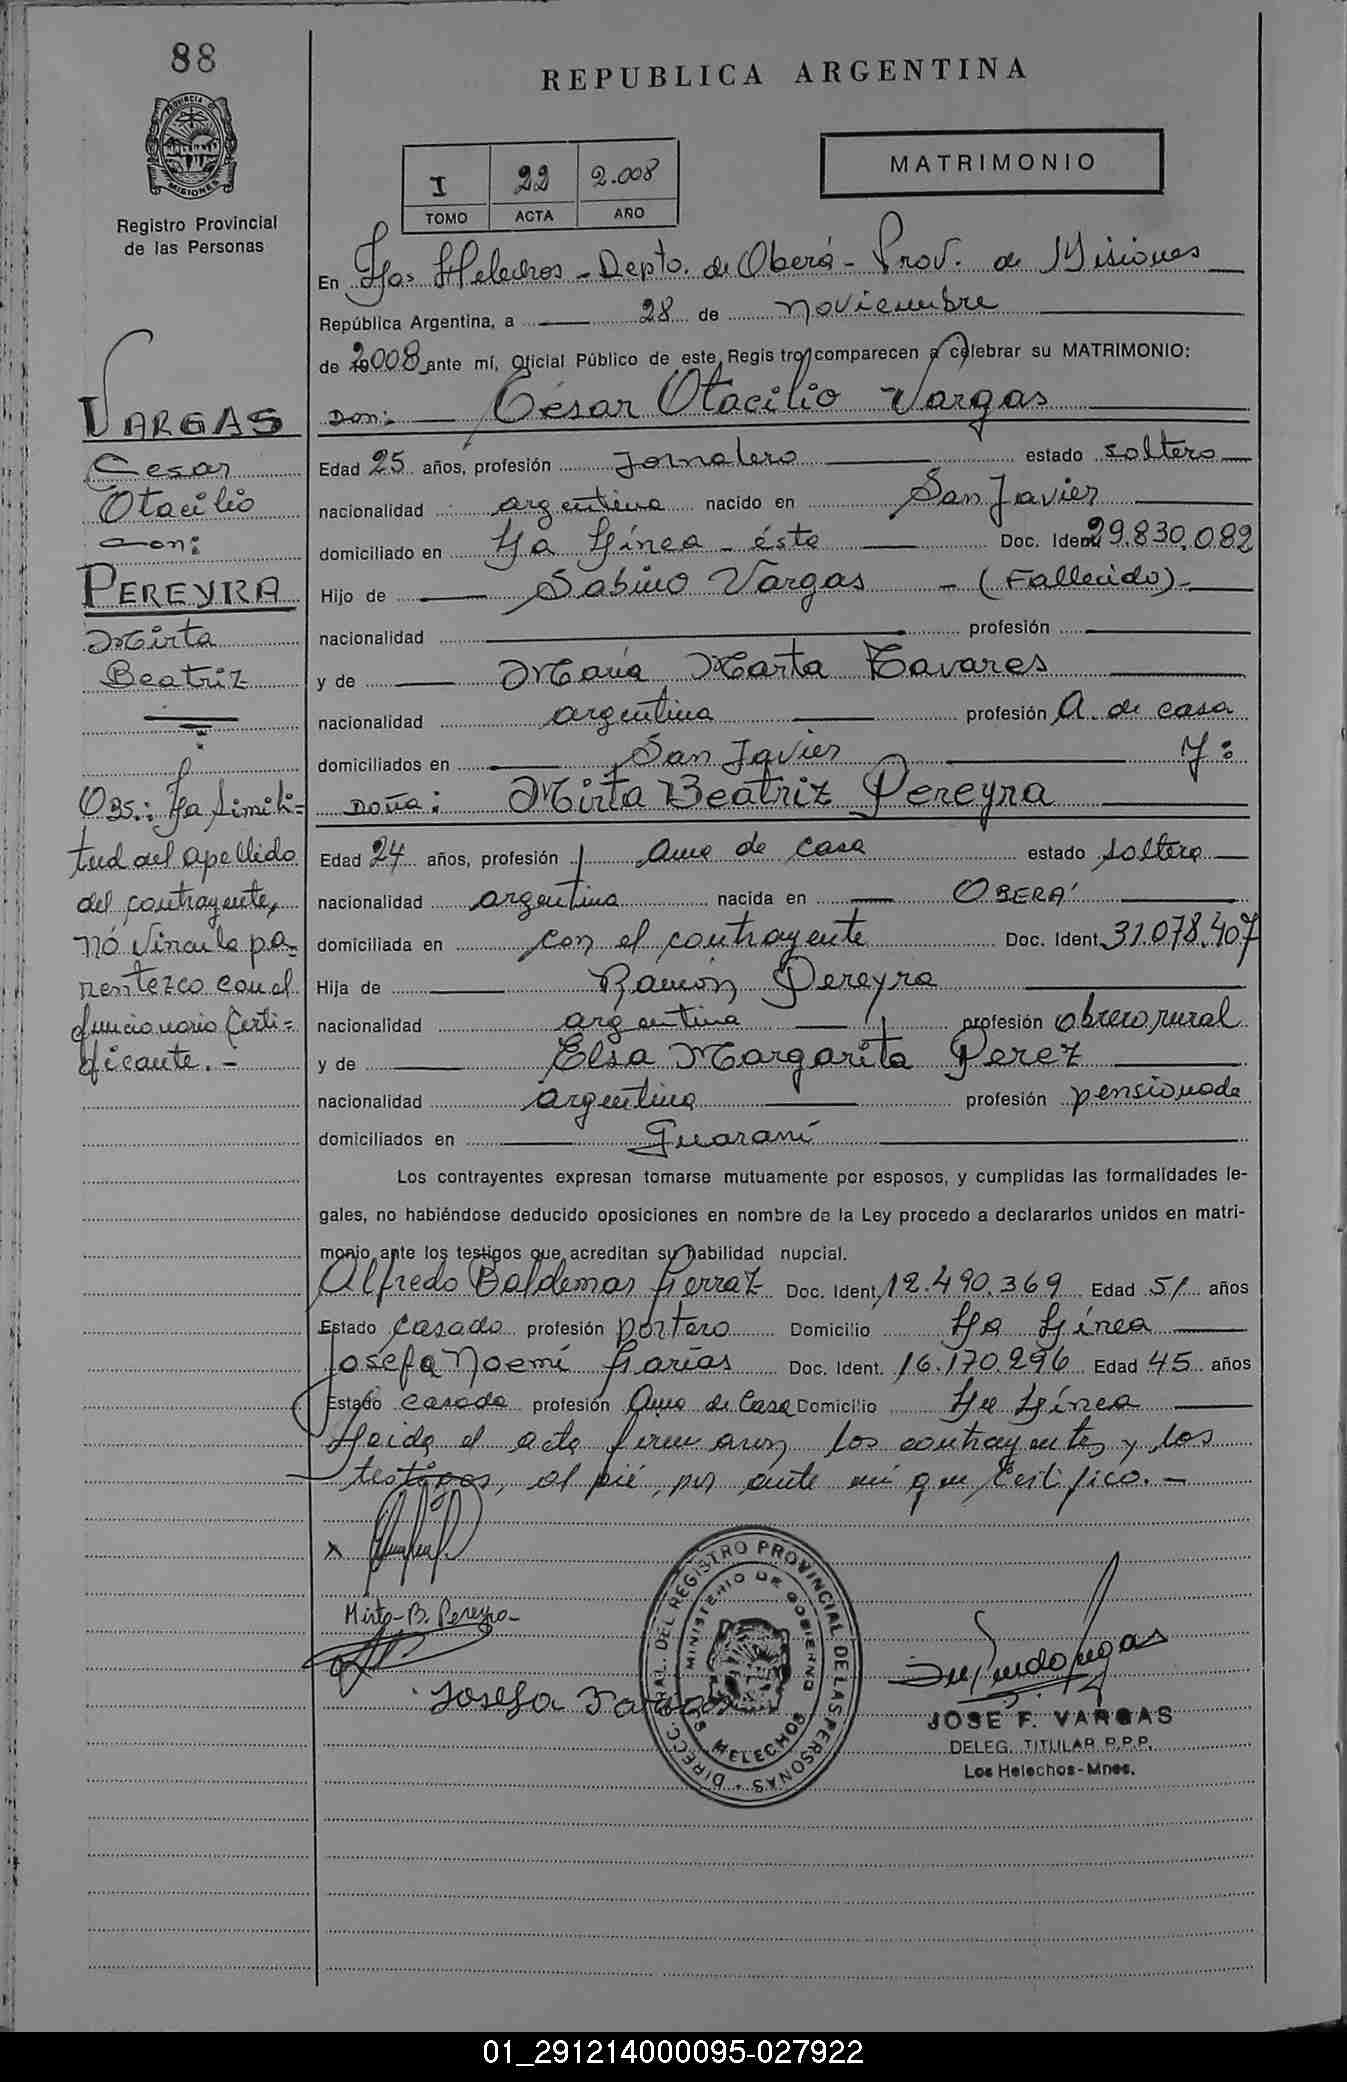 88
REPUBLICA ARGENTINA
PROVINCIA DE MISIONES
Registro Provincial
de las Personas
I 22 2.008
TOMO ACTA AÑO
MATRIMONIO
En Los Helechos - Depto. de Oberá - Prov. de Misiones
República Argentina, a 28 de noviembre
de 2008 ante mí, Oficial Público de este Registro, comparecen a celebrar su MATRIMONIO:
Don: César Otacilio Vargas
Edad 25 años, profesión Jornalero estado soltero
nacionalidad argentina nacido en San Javier
domiciliado en La Línea - éste Doc. Ident. 29.830.082
Hijo de Sabino Vargas - (Fallecido) -
nacionalidad profesión
y de María Marta Tavares
nacionalidad argentina profesión A. de casa
domiciliados en San Javier Y:
Doña: Mirta Beatriz Pereyra
Edad 24 años, profesión Ama de casa estado soltera
nacionalidad argentina nacida en OBERÁ
domiciliada en con el contrayente Doc. Ident. 31.078.407
Hija de Ramón Pereyra
nacionalidad argentina profesión obrero rural
y de Elsa Margarita Perez
nacionalidad argentina profesión pensionada
domiciliados en Guaraní
Los contrayentes expresan tomarse mutuamente por esposos, y cumplidas las formalidades le-
gales, no habiéndose deducido oposiciones en nombre de la Ley procedo a declararlos unidos en matri-
monio ante los testigos que acreditan su habilidad nupcial.
Alfredo Baldemar Ferraz Doc. Ident. 12.490.369 Edad 51 años
Estado casado profesión portero Domicilio La Línea
Josefa Noemí Farías Doc. Ident. 16.170.296 Edad 45 años
Estado casada profesión Ama de Casa Domicilio La Línea
Leida el acta firmaron los contrayentes y los
testigos, al pié, por ante mí que Certifico. -
VARGAS
Cesar
Otacilio
con:
PEREYRA
Mirta
Beatriz
Obs.: La simili=
tud del apellido
del contrayente,
nó vincula pa=
rentezco con el
funcionario Certi=
ficante. -
x
Mirta - B. Pereyra -
Josefa Farias
DIRECC. GRAL. DEL REGISTRO PROVINCIAL DE LAS PERSONAS
MINISTERIO DE GOBIERNO
LOS HELECHOS
JOSE F. VARGAS
DELEG. TITULAR R.P.P.
Los Helechos - Mnes.
01_291214000095-027922